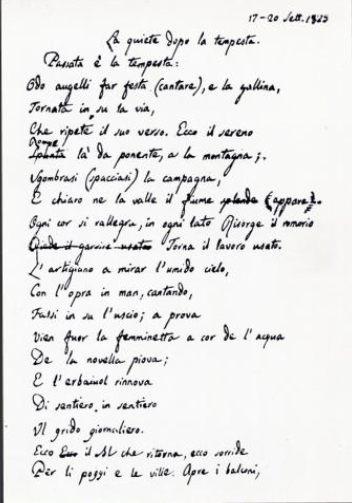 17-20 Sett. 1829
La quiete dopo la tempesta.
Passata è la tempesta:
Odo augelli far festa (cantare), e la gallina,
Tornata in su la via,
Che ripete il suo verso. Ecco il sereno
Rompe
Spunta là da ponente, a la montagna;
Sgombrasi (spacciasi) la campagna,
E chiaro ne la valle il fiume splende (appare).
Ogni cor si rallegra, in ogni lato Risorge il romorio
garrire usato Torna il lavoro usato.
L'artigiano a mirar l'umido cielo,
Con l'opra in man, cantando,
Fassi in su l'uscio; a prova
Vien fuor la femminetta a cor de l'acqua
De la novella piova;
E l'erbaiuol rinnova
Di sentiero in sentiero
Il grido giornaliero.
Ecco Ecco il Sol che ritorna, ecco sorride
Per li poggi e le ville. Apre i balconi,